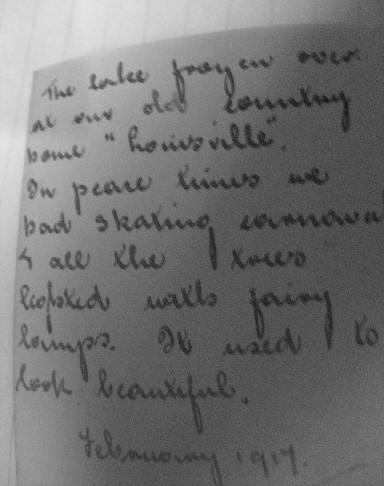 The lake frozen over
at our old country
home "Louisville".
In peace times we
had skating carnivals
& all the trees
lighted with fairy
lamps. It used to
look beautiful.
February 1917.